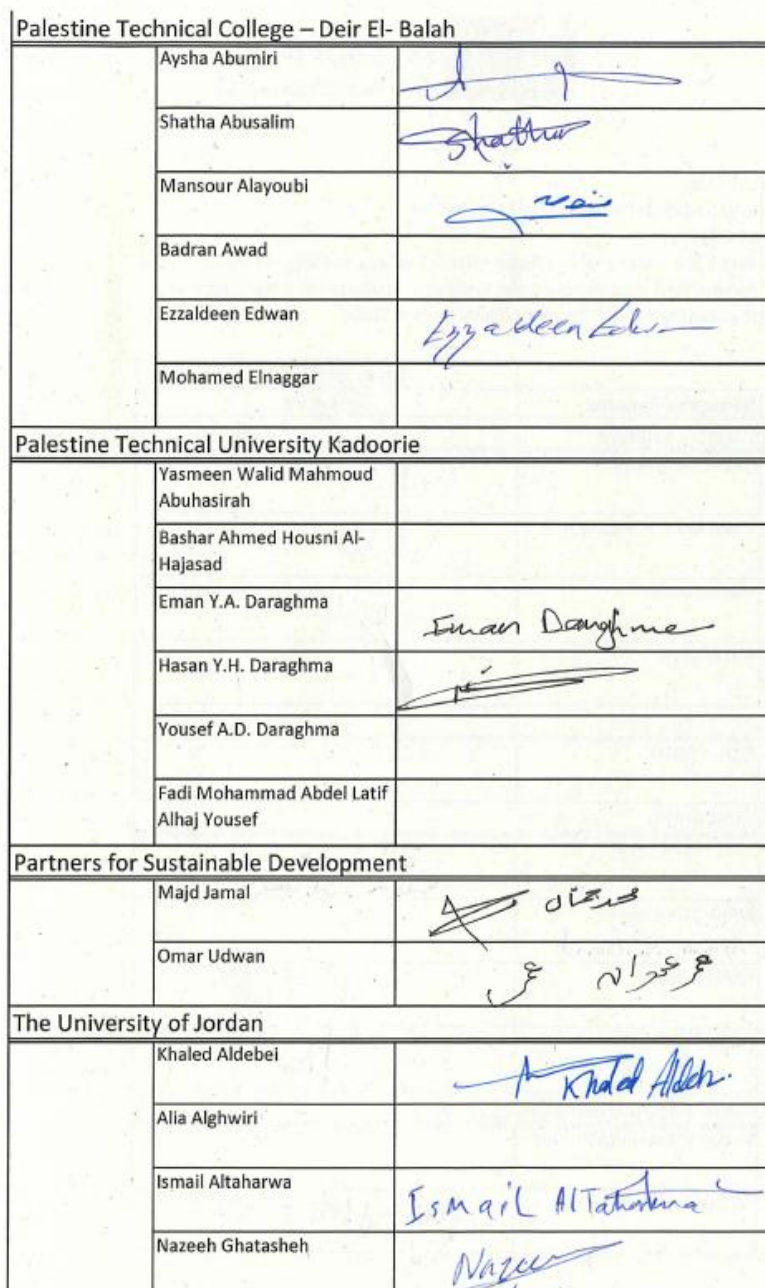 Palestine Technical College – Deir El- Balah
Aysha Abumiri
Shatha Abusalim Shatha
Mansour Alayoubi
Badran Awad
Ezzaldeen Edwan Ezzaldeen Edw
Mohamed Elnaggar
Palestine Technical University Kadoorie
Yasmeen Walid Mahmoud
Abuhasirah
Bashar Ahmed Housni Al-
Hajasad
Eman Y.A. Daraghma Eman Daraghme
Hasan Y.H. Daraghma
Yousef A.D. Daraghma
Fadi Mohammad Abdel Latif
Alhaj Yousef
Partners for Sustainable Development
Majd Jamal
Omar Udwan عمر عدوان
The University of Jordan
Khaled Aldebei Khaled Aldebei
Alia Alghwiri
Ismail Altaharwa Ismail AlTaharwa
Nazeeh Ghatasheh Nazeeh